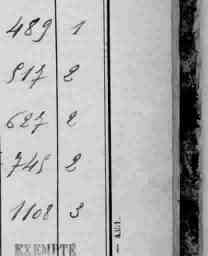 489 1
517 2
627 2
745 2
1108 3
EXEMPTÉ